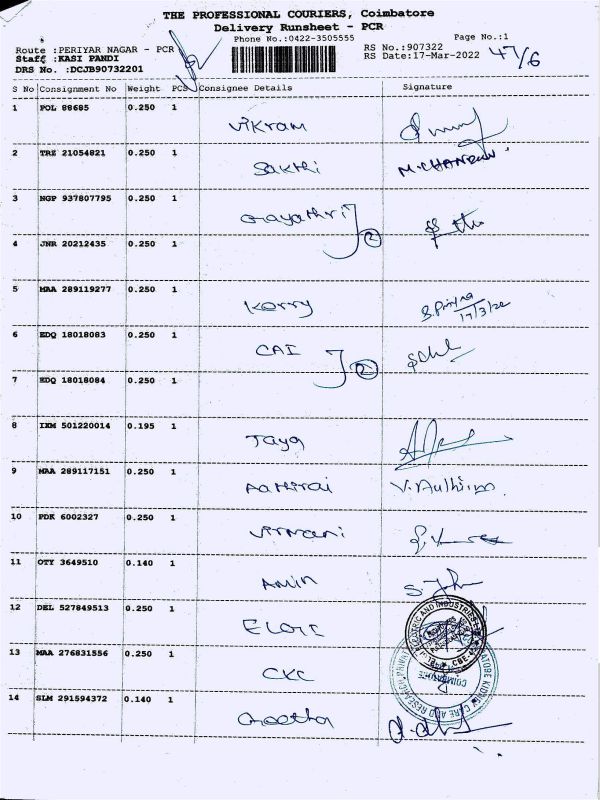 THE PROFESSIONAL COURIERS, Coimbatore
Delivery Runsheet - PCR
Phone No.:0422-3505555
Page No.:1
Route :PERIYAR NAGAR - PCR
RS No.:907322
Staff :KASI PANDI
RS Date:17-Mar-2022
47/6
DRS No. :DCJB90732201
S No Consignment No Weight PCS Consignee Details Signature
1 POL 88685 0.250 1 Vikram
2 TRE 21054821 0.250 1 Sakthi
3 NGP 937807795 0.250 1 Gayathri 2
4 JNR 20212435 0.250 1
5 MAA 289119277 0.250 1 Kerry S.Priya 17/3/22
6 EDQ 18018083 0.250 1 CAI 2
7 EDQ 18018084 0.250 1
8 IXM 501220014 0.195 1 Jaya
9 MAA 289117151 0.250 1 Aathirai
10 PDK 6002327 0.250 1 Virmani
11 OTY 3649510 0.140 1 Amin
12 DEL 527849513 0.250 1
13 MAA 276831556 0.250 1 CKC
14 SLM 291594372 0.140 1 Geetha